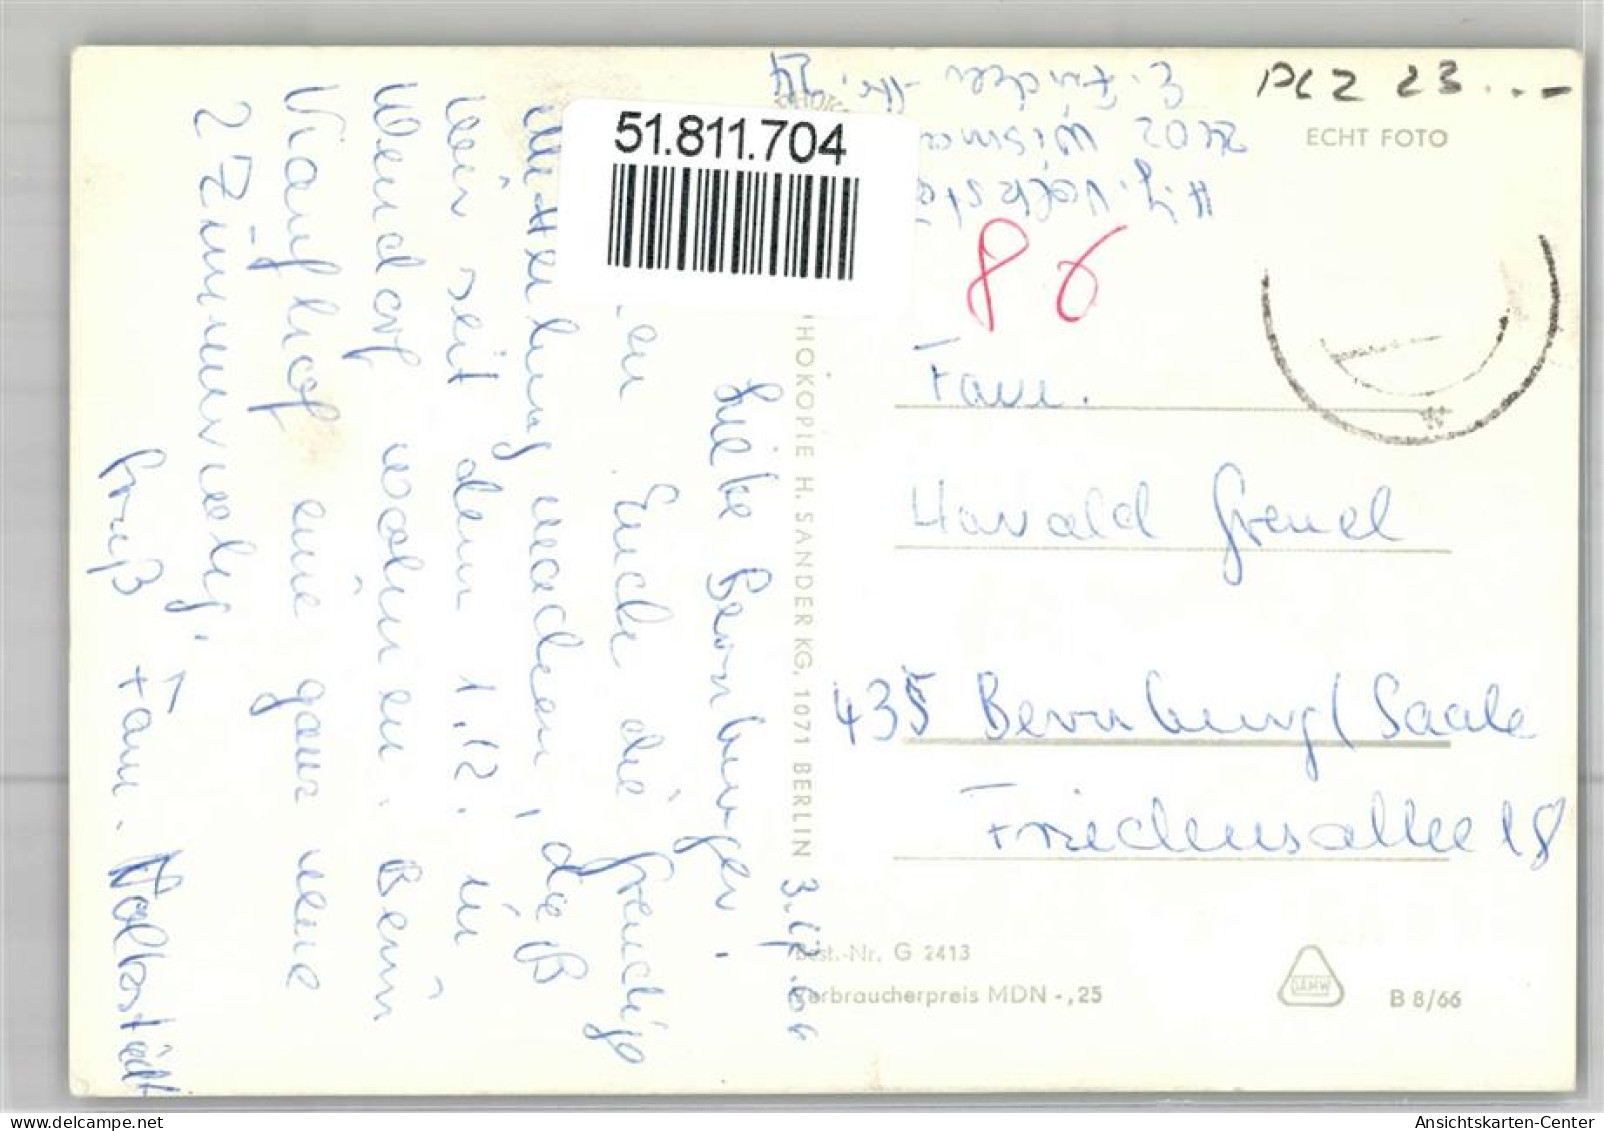 PLZ 23...-
ECHT FOTO
51.811.704
H.J. Volkstä
2402 Wisma
E.
-Str. 24
86
Fam.
Harald Grenel
435 Bernburg/Saale
Friedensallee 18
3.12.66
Liebe Bernburger!
en Euch die freudige
Mitteilung machen, daß
wir seit dem 1.12. in
Wendorf wohnen. Beim
Kaufhof eine ganz neue
2 Zimmerwohg.
Gruß Fam. Volkstädt
HOKOPIE H. SANDER KG, 1071 BERLIN
Best.-Nr. G 2413
Verbraucherpreis MDN -,25
DAMW
B 8/66
Ansichtskarten-Center